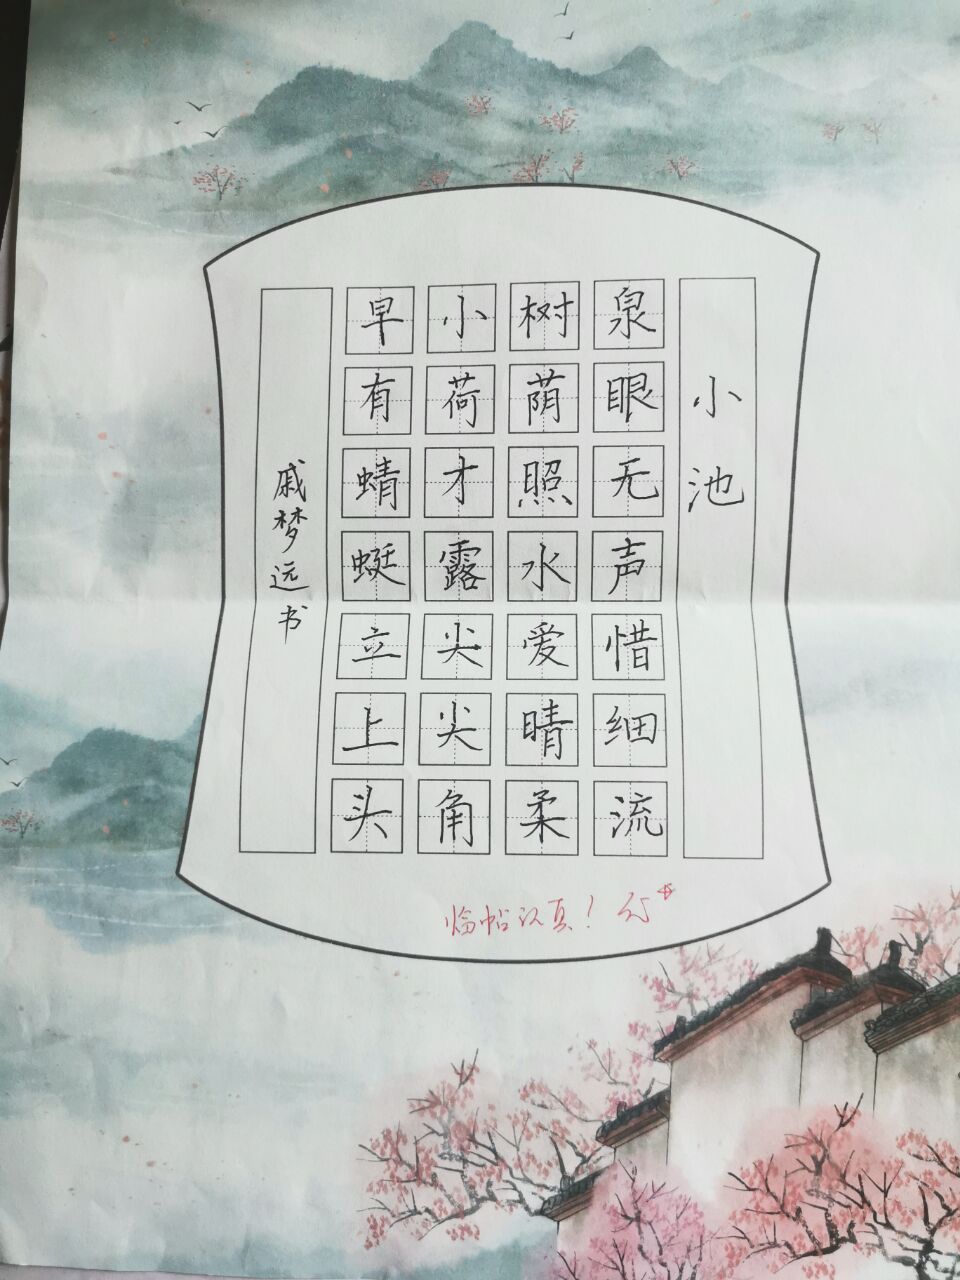 小池
泉眼无声惜细流
树荫照水爱晴柔
小荷才露尖尖角
早有蜻蜓立上头
戚梦远书
临帖认真！